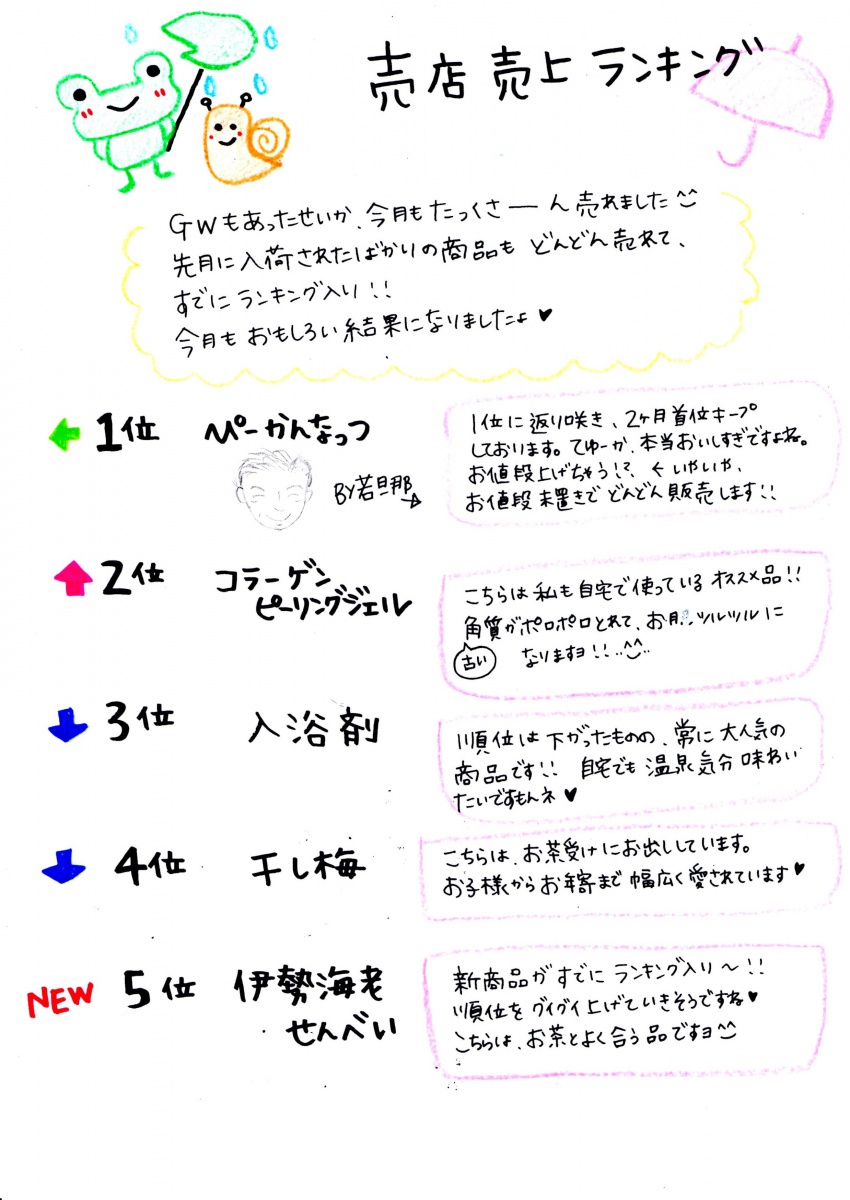 売店 売上 ランキング
GWもあったせいか、今月もたっくさーーん売れました^^
先月に入荷されたばかりの商品も どんどん売れて、
すでに ランキング入り!!
今月も おもしろい結果になりましたよ♥
1位 ぺーかんなっつ
BY若旦那
1位に返り咲き、2ヶ月首位キープ
しております。てゆーか、本当おいしすぎですよね。
お値段上げちゃう!?、←いやいや、
お値段 末置きで どんどん販売します!!
2位 コラーゲン
ピーリングジェル
こちらは私も自宅で使っている オススメ品!!
角質がポロポロとれて、お肌ツルツルに
古い
なりますヨ!!..^^..
3位 入浴剤
順位は下がったものの、常に大人気の
商品です!! 自宅でも 温泉気分 味わい
たいですもんネ♥
4位 干し梅
こちらは、お茶受けにお出ししています。
お子様からお年寄まで 幅広く愛されています♥
NEW 5位 伊勢海老
せんべい
新商品がすでに ランキング入り〜!!
順位をグイグイ上げていきそうですね♥
こちらは、お茶とよく合う品ですヨ^^